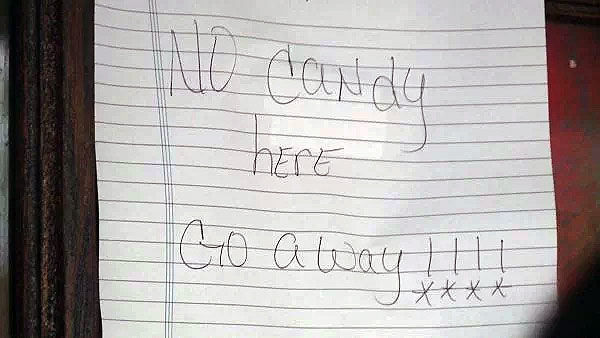 NO candy
here
Go away!!!!